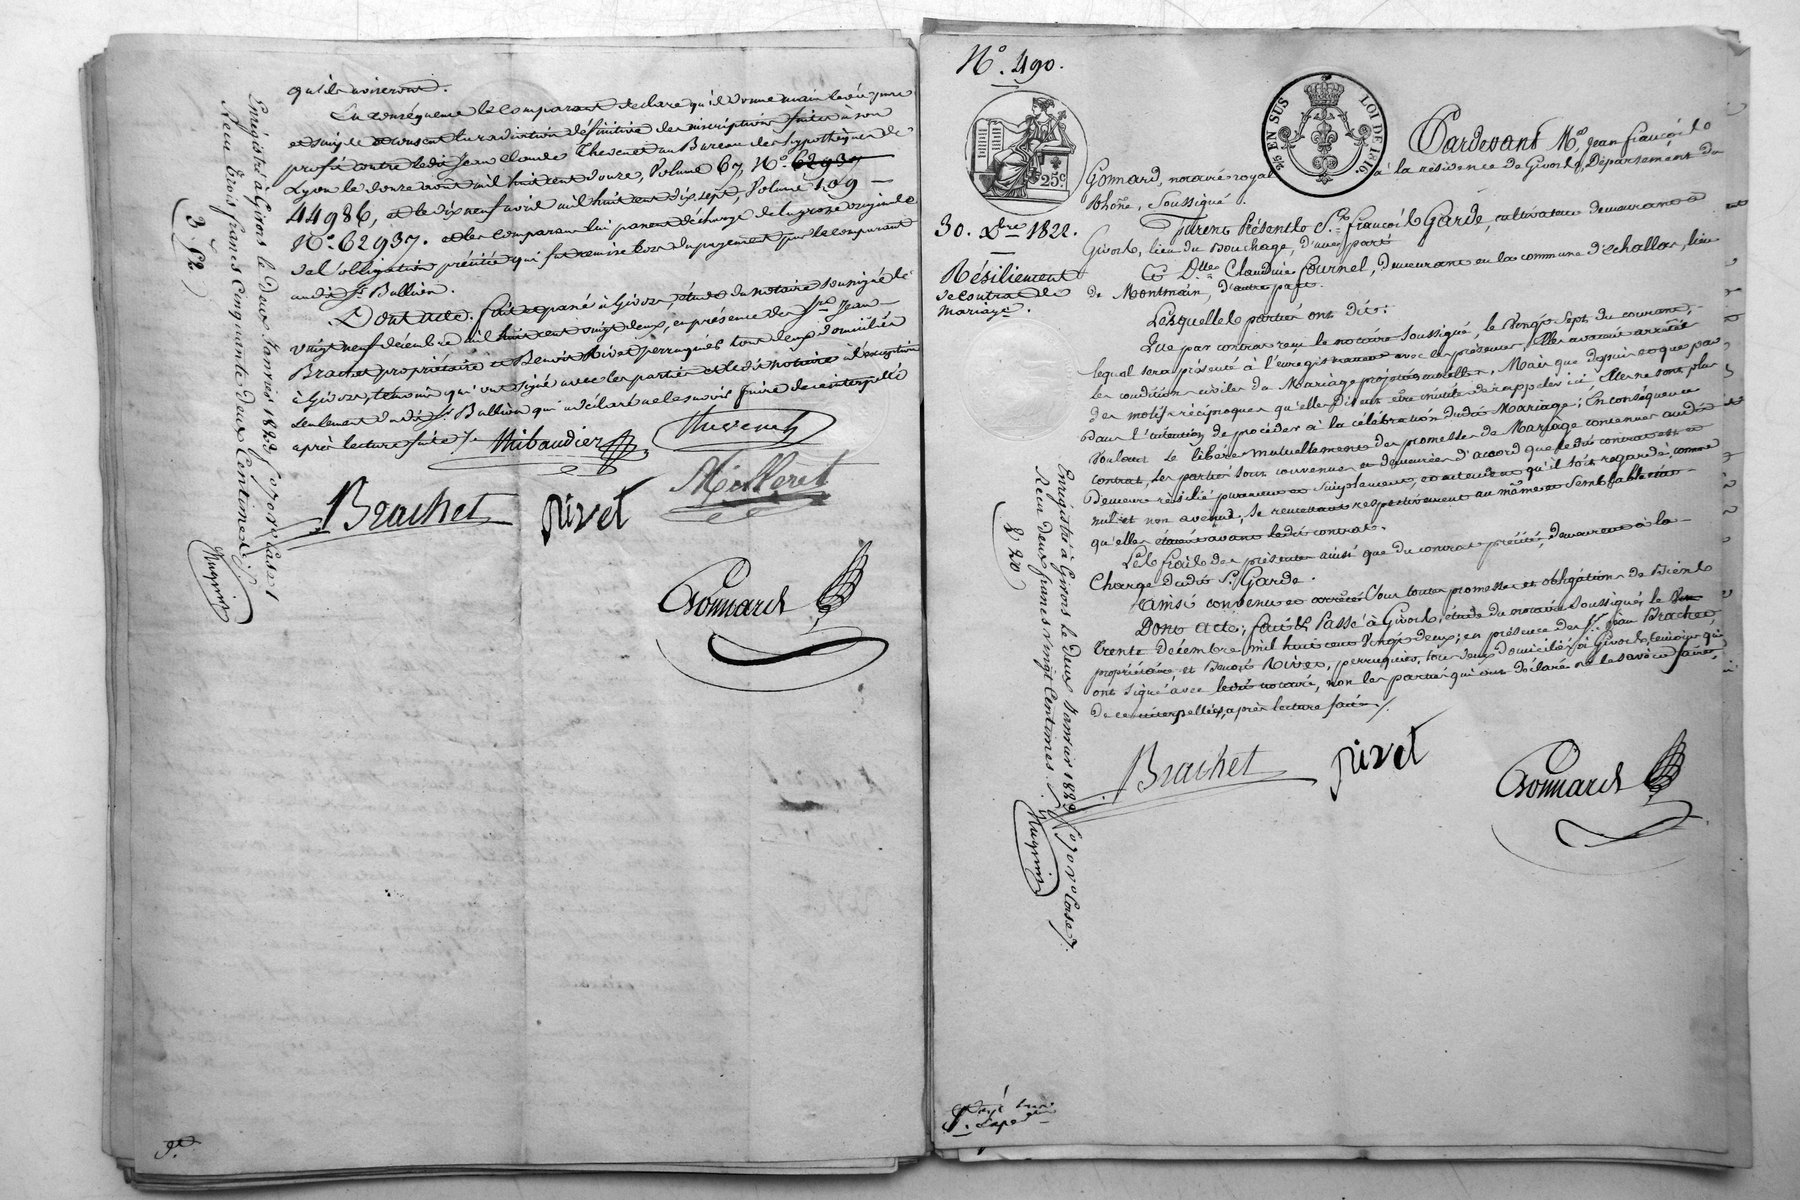 qu'ils aviseront.
En conséquence le comparant déclare qu'il donne main levée pure
et simple et consent la radiation définitive des inscriptions faites à son
profit contre ledit Jean Claude Thevenet au Bureau des hypothèques de
Lyon le douze août mil huit cent douze, Volume 67, N.o 62937
44986, et le dix neuf avril mil huit cent dix sept, Volume 109
N.o 62937. et les comparans lui passent décharge de la grosse originale
de l'obligation précitée qui fut remise lors du payement par le comparant
audit S.r Bullion.
Dont acte, fait et passé à Givors, étude du notaire soussigné le
vingt neuf décembre mil huit cent vingt deux, en présence des S.rs Jean
Brachet propriétaire et Benoit Rivet perruquier tous deux domiciliés
à Givors, témoins qui ont signé avec les parties et ledit notaire à l'exception
seulement dudit S.r Bullion qui a déclaré ne le savoir faire de ce interpellé
après lecture faite
Thibaudier
Thevenet
Milleret
Brachet
Rivet
Gonnard
Enrégistré à Givors le deux Janvier 1823 f.o 70 v.o Case 1
Reçu trois francs Cinquante deux Centimes
3. 52
N.o 490.
25 c.
25 EN SUS
LOI DE 1816.
30. Xbre 1822.
Résiliement
de contrat de
mariage.
Pardevant M.e Jean François
Gonnard, notaire royal à la résidence de Givors, Département du
Rhône, Soussigné.
Furent Présents S.r François Garde, cultivateur demeurant à
Givors, lieu du Bouchage, d'une part;
Et D.lle Claudine Fournel, demeurant en la commune d'Echallas, lieu
de Montmain, d'autre part.
Lesquelles parties ont dit:
Que par contrat reçu le notaire Soussigné, le Vingt Sept du courant,
lequel sera présenté à l'enregistrement avec ces présentes, Elles avaient arrêtés
les conditions civiles du Mariage projeté entr'elles, Mais que depuis et que par
des motifs réciproques qu'elles disent être inutile de rappeler ici, Elles ne sont plus
dans l'intention de procéder à la célébration dudit Mariage; En conséquence
voulant se libérer mutuellement des promesses de Mariage contenues audit
contrat, les parties sont convenues et demeurées d'accord que ledit contrat est et
demeure résilié purement et simplement, et entendent qu'il soit regardé comme
nul et non avenu, se remettant respectivement au même et semblable état
qu'elles étaient avant ledit contrat.
Les frais des présentes ainsi que du contrat précité, demeurent à la
Charge dudit S.r Garde.
Ainsi convenu et arrêté sous toutes promesses et obligations de Biens
Dont acte; fait & Passé à Givors, étude du notaire Soussigné, le
trente décembre mil huit cent vingt deux; en présence des S.rs Jean Brachet,
propriétaire, et Benoit Rivet, perruquier, tous deux domiciliés à Givors, témoins qui
ont signé avec ledit notaire, non les parties qui ont déclaré ne le savoir faire,
de ce interpellées, après lecture faite.
Brachet
Rivet
Gonnard
Enrégistré à Givors le deux Janvier 1823 f.o 70 v.o Case 7.
Reçu deux francs vingt Centimes.
2 20